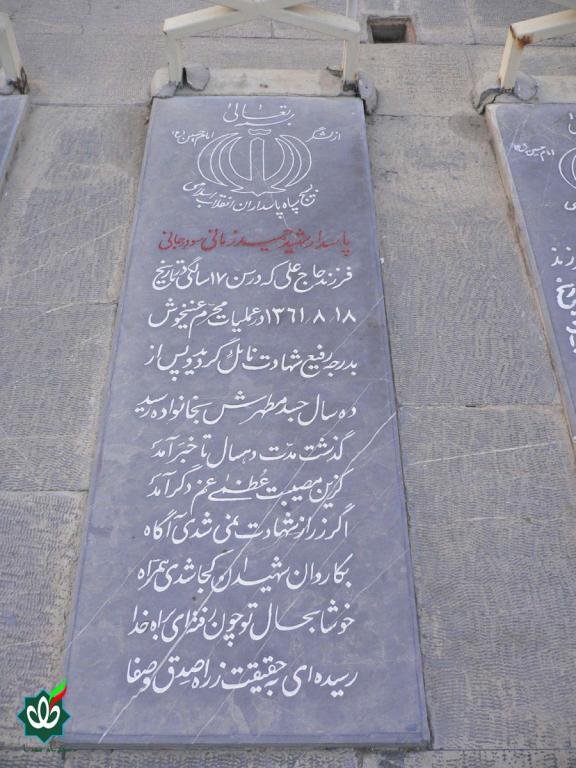 بسمه تعالی
از لشگر امام حسین (ع)
بسیج سپاه پاسداران انقلاب اسلامی
پاسدار شهید حمید زمانی سودرجانی
فرزند حاج علی که در سن ۱۷ سالگی در تاریخ
۱۳۶۱/۸/۱۸ در عملیات محرم عینخوش
بدرجه رفیع شهادت نائل گردید و پس از
ده سال جسد مطهرش بخانواده رسید
گذشت مدت ده سال تا خبر آمد
کزین مصیبت عظمی غم دگر آمد
اگر ز راز شهادت نمی شدی آگاه
بکاروان شهیدان کجا شدی همراه
خوشا بحال تو چون رفته ای براه خدا
رسیده ای به حقیقت ز راه صدق و صفا
امام حسین (ع)